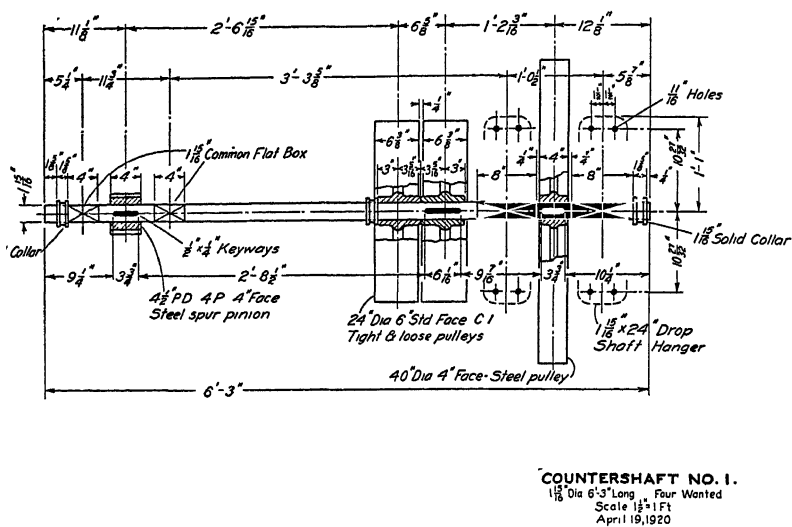 11 1/8" 2'-6 15/16" 6 5/8" 1'-2 3/16" 12 1/8"
5 1/4" 11 3/4" 3'-3 5/8" 1'-0 1/2" 5 7/8"
1/4" 11/16 Holes
6 3/8" 6 3/8"
1 15/16" Common Flat Box
4" 4" 3" 3" 8" 1/4" 4" 1/4" 8" 1/4"
1 15/16" 10 27/32" 1'-1"
Collar
1/2" x 1/4" Keyways
1 15/16" Solid Collar
10 27/32"
9 1/4" 3 3/4" 2'-8 1/2" 6 1/16" 9 7/16" 3 3/4" 10 1/4"
4 1/2" PD 4P 4" Face
Steel spur pinion
24" Dia 6" Std Face C I
Tight & loose pulleys
1 15/16" x 24" Drop
Shaft Hanger
40" Dia 4" Face-Steel pulley
6'-3"
COUNTERSHAFT NO. 1.
1 15/16" Dia 6'-3" Long Four Wanted
Scale 1 1/2" = 1 Ft
April 19, 1920